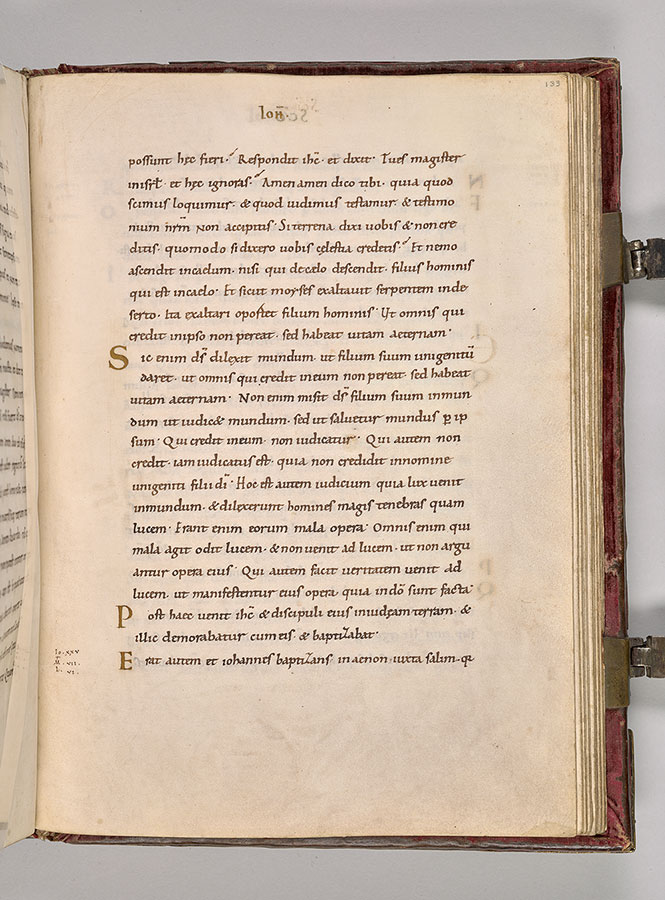 133
Ioħ.
possunt hęc fieri? Respondit ihc̄· et dixit· Tues magister
inisrl̄· et hęc ignoras? Amen amen dico tibi· quia quod
scimus loquimur· & quod uidimus testamur· & testimo
nium nr̄m non accipitis· Si terrena dixi uobis & non cre
ditis· quomodo si dixero uobis cęlestia credetis? Et nemo
ascendit incaelum· nisi qui decęlo descendit· filius hominis
qui est incaelo· Et sicut moyses exaltauit serpentem inde
serto· Ita exaltari oportet filium hominis· Ut omnis qui
credit inipso non pereat· sed habeat uitam aeternam·
Sic enim dr̄ dilexit mundum· ut filium suum unigenitū
daret· ut omnis qui credit ineum non pereat· sed habeat
uitam aeternam· Non enim misit ds̄ filium suum inmun
dum ut iudic& mundum· sed ut saluetur mundus ꝑ ip
sum· Qui credit ineum· non iudicatur· Qui autem non
credit· iam iudicatus est· quia non credidit innomine
unigeniti filii dī· Hoc est autem iudicium quia lux uenit
inmundum· & dilexerunt homines magis tenebras quam
lucem· Erant enim eorum mala opera· Omnis enim qui
mala agit odit lucem· & non uenit ad lucem· ut non argu
antur opera eius· Qui autem facit ueritatem uenit ad
lucem· ut manifestentur eius opera quia indō sunt facta·
Post haec uenit ihc̄ & discipuli eius iniudęam terram· &
illic demorabatur cum eis· & baptizabat·
Erat autem et iohannes baptizans· in aenon iuxta salim· q
Io·xxv
M̄·vii·
L·vi·